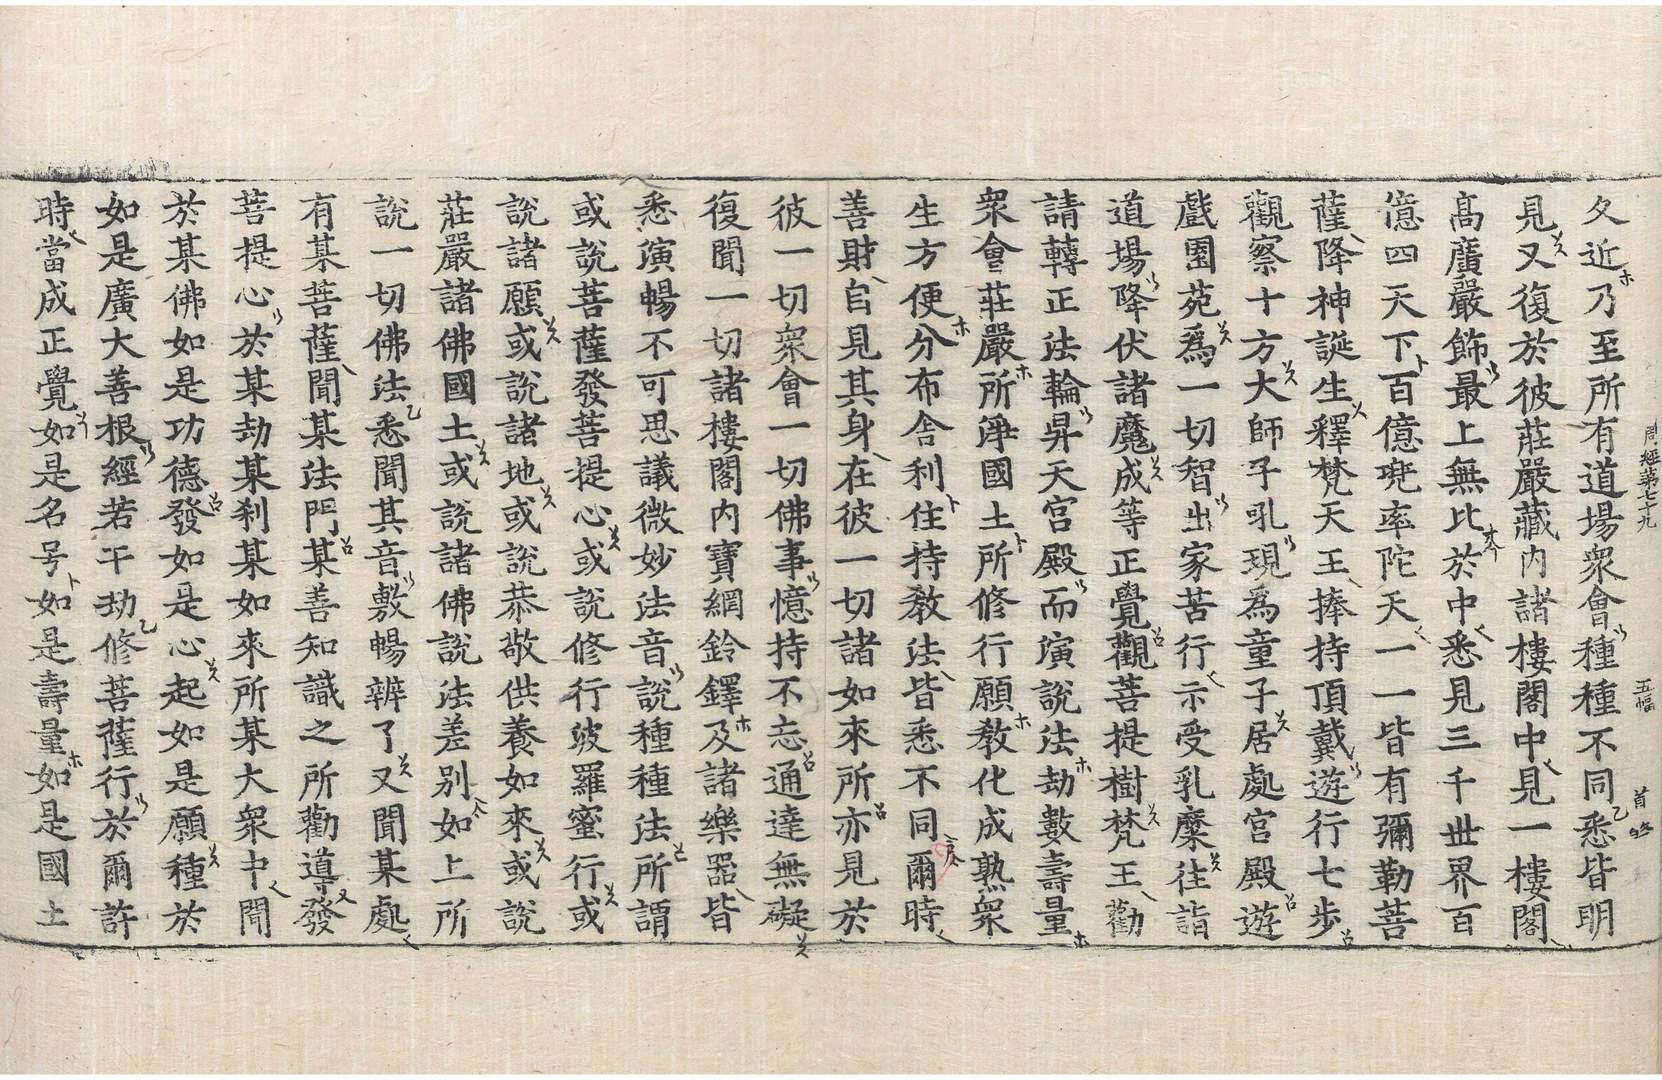 周經第七十九 五幅 首
久近乃至所有道場衆會種種不同悉皆明
見又復於彼莊嚴藏内諸樓閣中見一樓閣
髙廣嚴飾最上無比於中悉見三千世界百
億四天下百億兜率陀天一一皆有彌勒菩
薩降神誕生釋梵天王捧持頂戴遊行七步
觀察十方大師子吼現爲童子居處宮殿遊
戲園苑爲一切智出家苦行示受乳糜往詣
道場降伏諸魔成等正覺觀菩提樹梵王勸
請轉正法輪昇天宮殿而演說法劫數壽量
衆會莊嚴所淨國土所修行願教化成熟衆
生方便分布舍利住持教法皆悉不同爾時
善財自見其身在彼一切諸如來所亦見於
彼一切衆會一切佛事憶持不忘通達無礙
復聞一切諸樓閣内寶網鈴鐸及諸樂器皆
悉演暢不可思議微妙法音說種種法所謂
或說菩薩發菩提心或說修行波羅蜜行或
說諸願或說諸地或說恭敬供養如來或說
莊嚴諸佛國土或說諸佛說法差别如上所
說一切佛法悉聞其音敷暢辨了又聞某處
有某菩薩聞某法門某善知識之所勸導發
菩提心於某劫某刹某如來所某大衆中聞
於某佛如是功德發如是心起如是願種於
如是廣大善根經若干劫修菩薩行於爾許
時當成正覺如是名号如是壽量如是國土